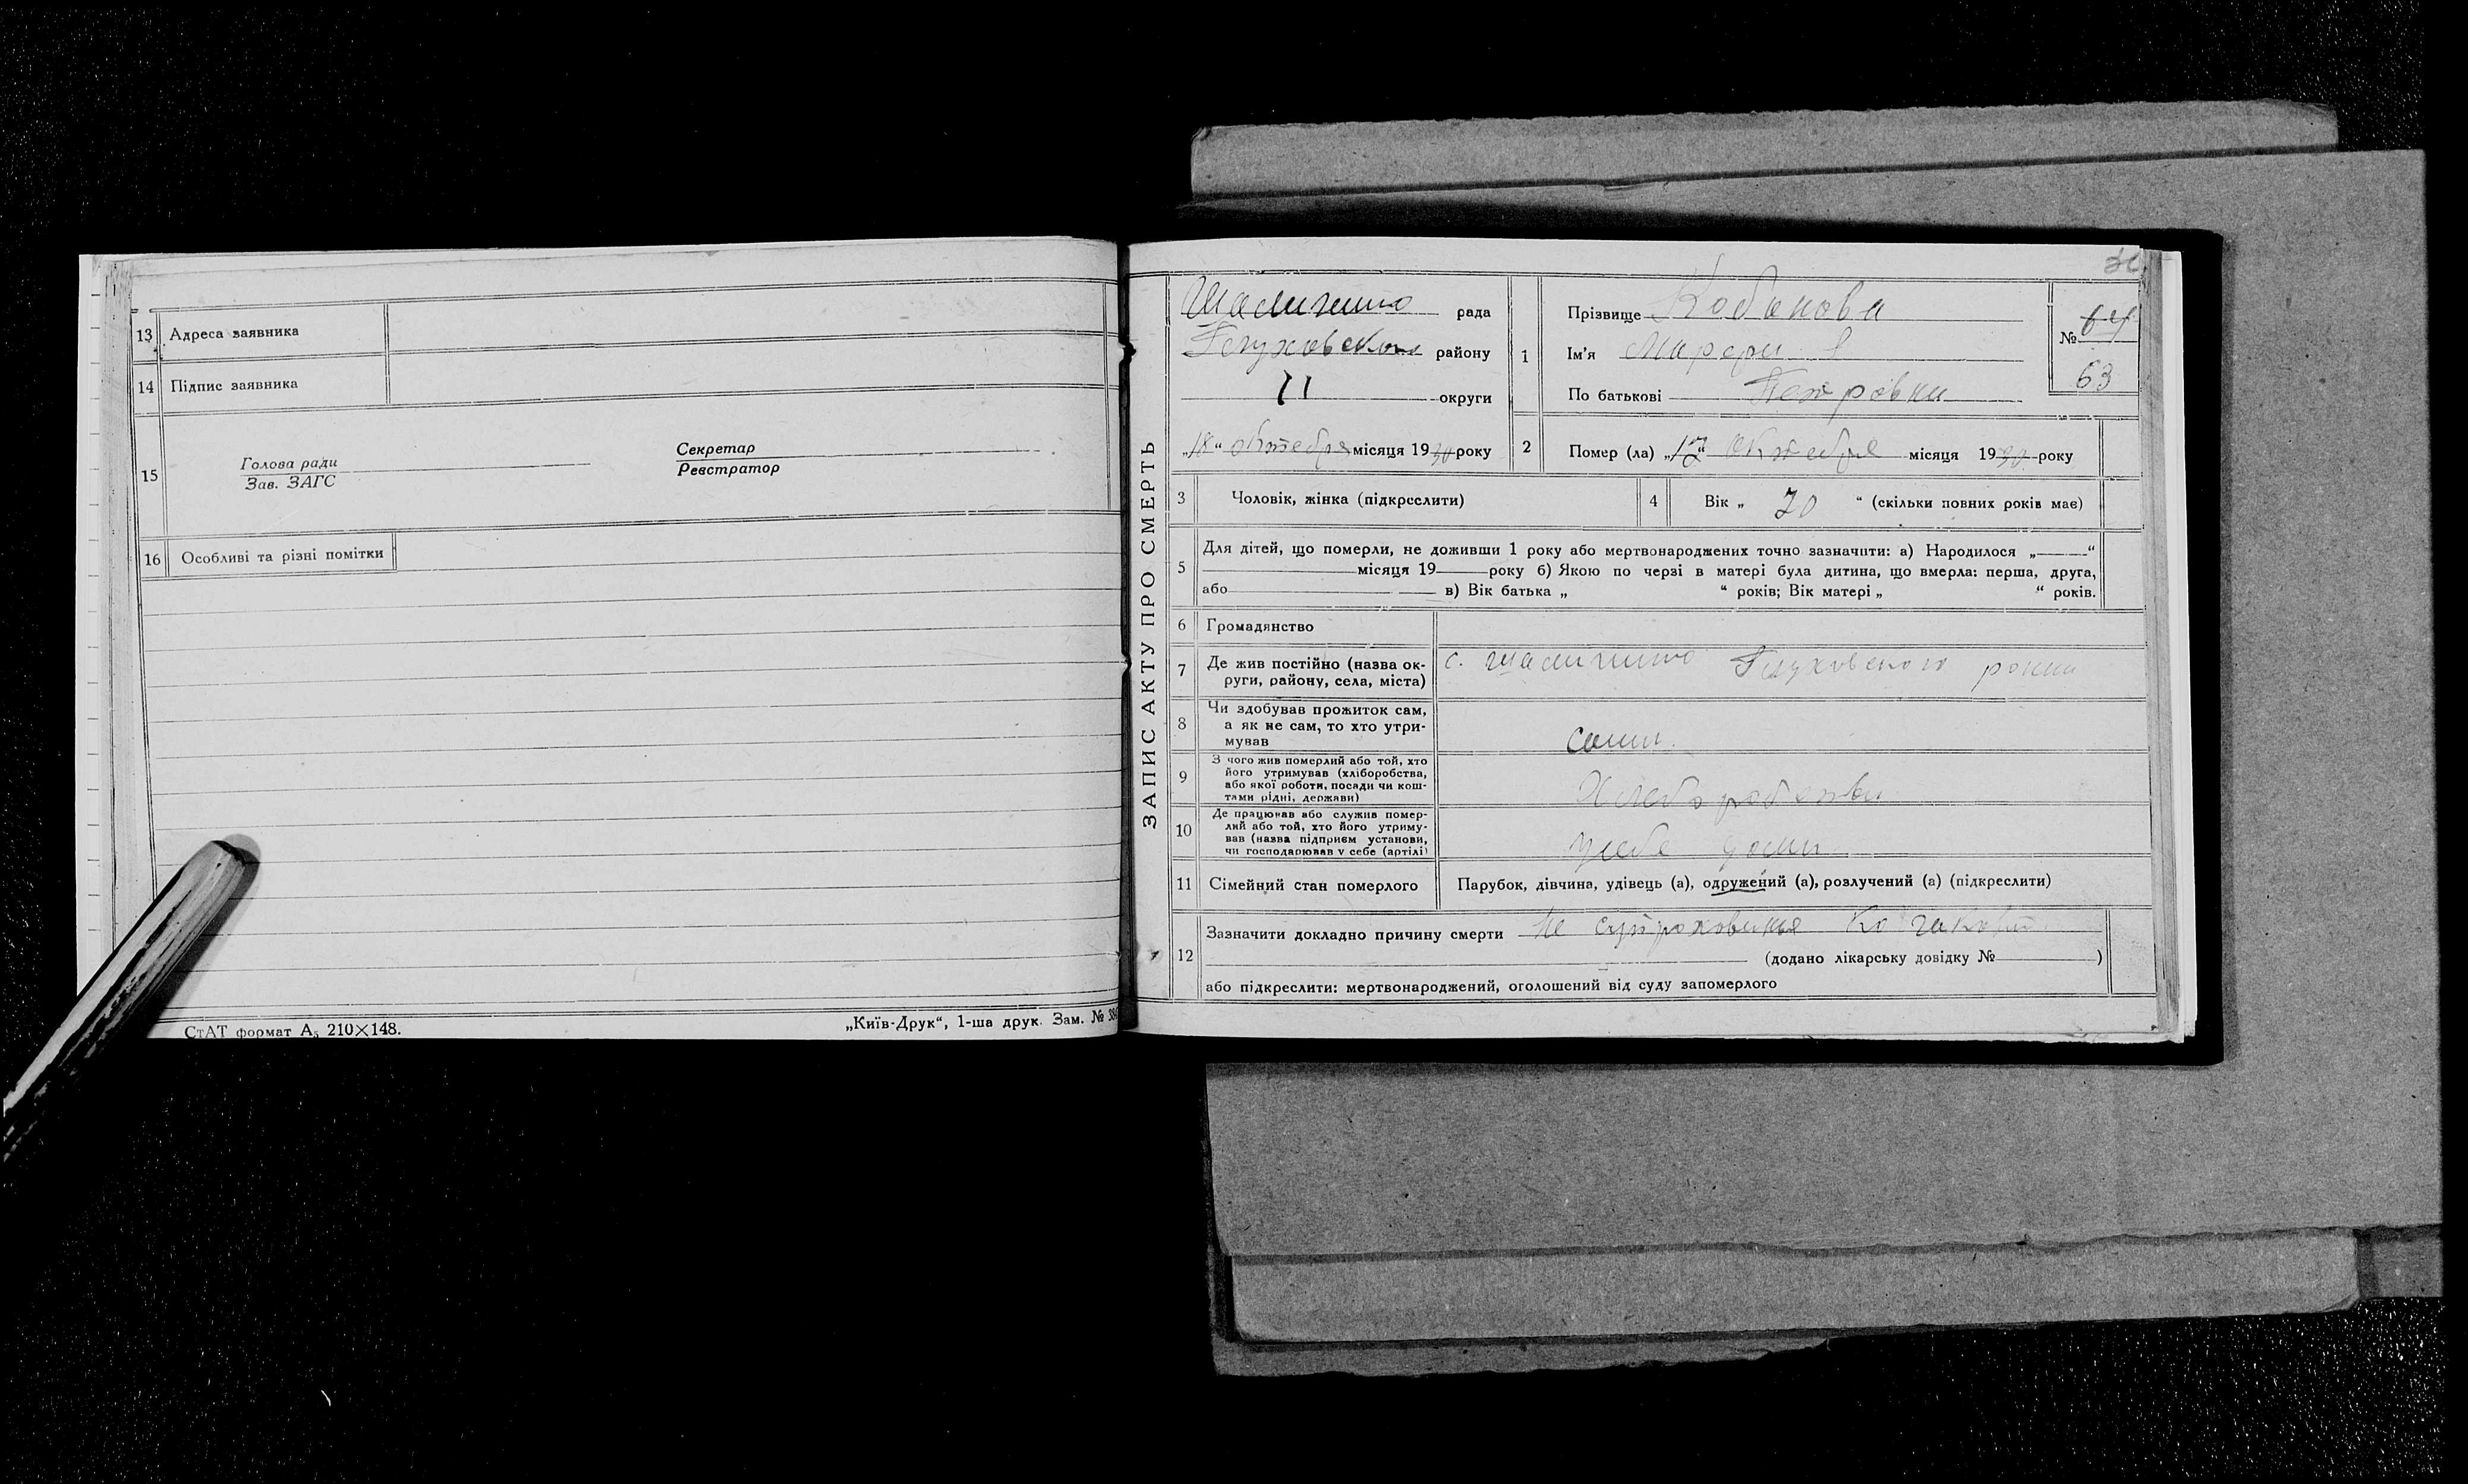 13 Адреса заявника
14 Підпис заявника
15 Голова ради
Зав. ЗАГС
Секретар
Реєстратор
16 Особливі та різні помітки
СтАТ формат А5 210×148.
„Київ-Друк“, 1-ша друк. Зам. №
ЗАПИС АКТУ ПРО СМЕРТЬ
рада
Глуховского району
округи
„18“ октебря місяця 1930 року
1 Прізвище Кобанова
Ім'я
По батькові Петровна
№ 64
63
2 Помер (ла) „17“ октебря місяця 1930 року
3 Чоловік, жінка (підкреслити)
4 Вік „ 70 “ (скільки повних років має)
5 Для дітей, що померли, не доживши 1 року або мертвонароджених точно зазначити: а) Народилося „ “
місяця 19 року б) Якою по черзі в матері була дитина, що вмерла: перша, друга,
або в) Вік батька „ “ років; Вік матері „ “ років.
6 Громадянство
7 Де жив постійно (назва ок-
руги, району, села, міста)
с. Глуховского
8 Чи здобував прожиток сам,
а як не сам, то хто утри-
мував
9 З чого жив померлий або той, хто
його утримував (хліборобства,
або якої роботи, посади чи кош-
тами рідні, держави)
10 Де працював або служив помер-
лий або той, хто його утриму-
вав (назва підприєм установи,
чи господарював у себе (артілі)
11 Сімейний стан померлого
Парубок, дівчина, удівець (а), одружений (а), розлучений (а) (підкреслити)
12 Зазначити докладно причину смерти не
(додано лікарську довідку № )
або підкреслити: мертвонароджений, оголошений від суду запомерлого